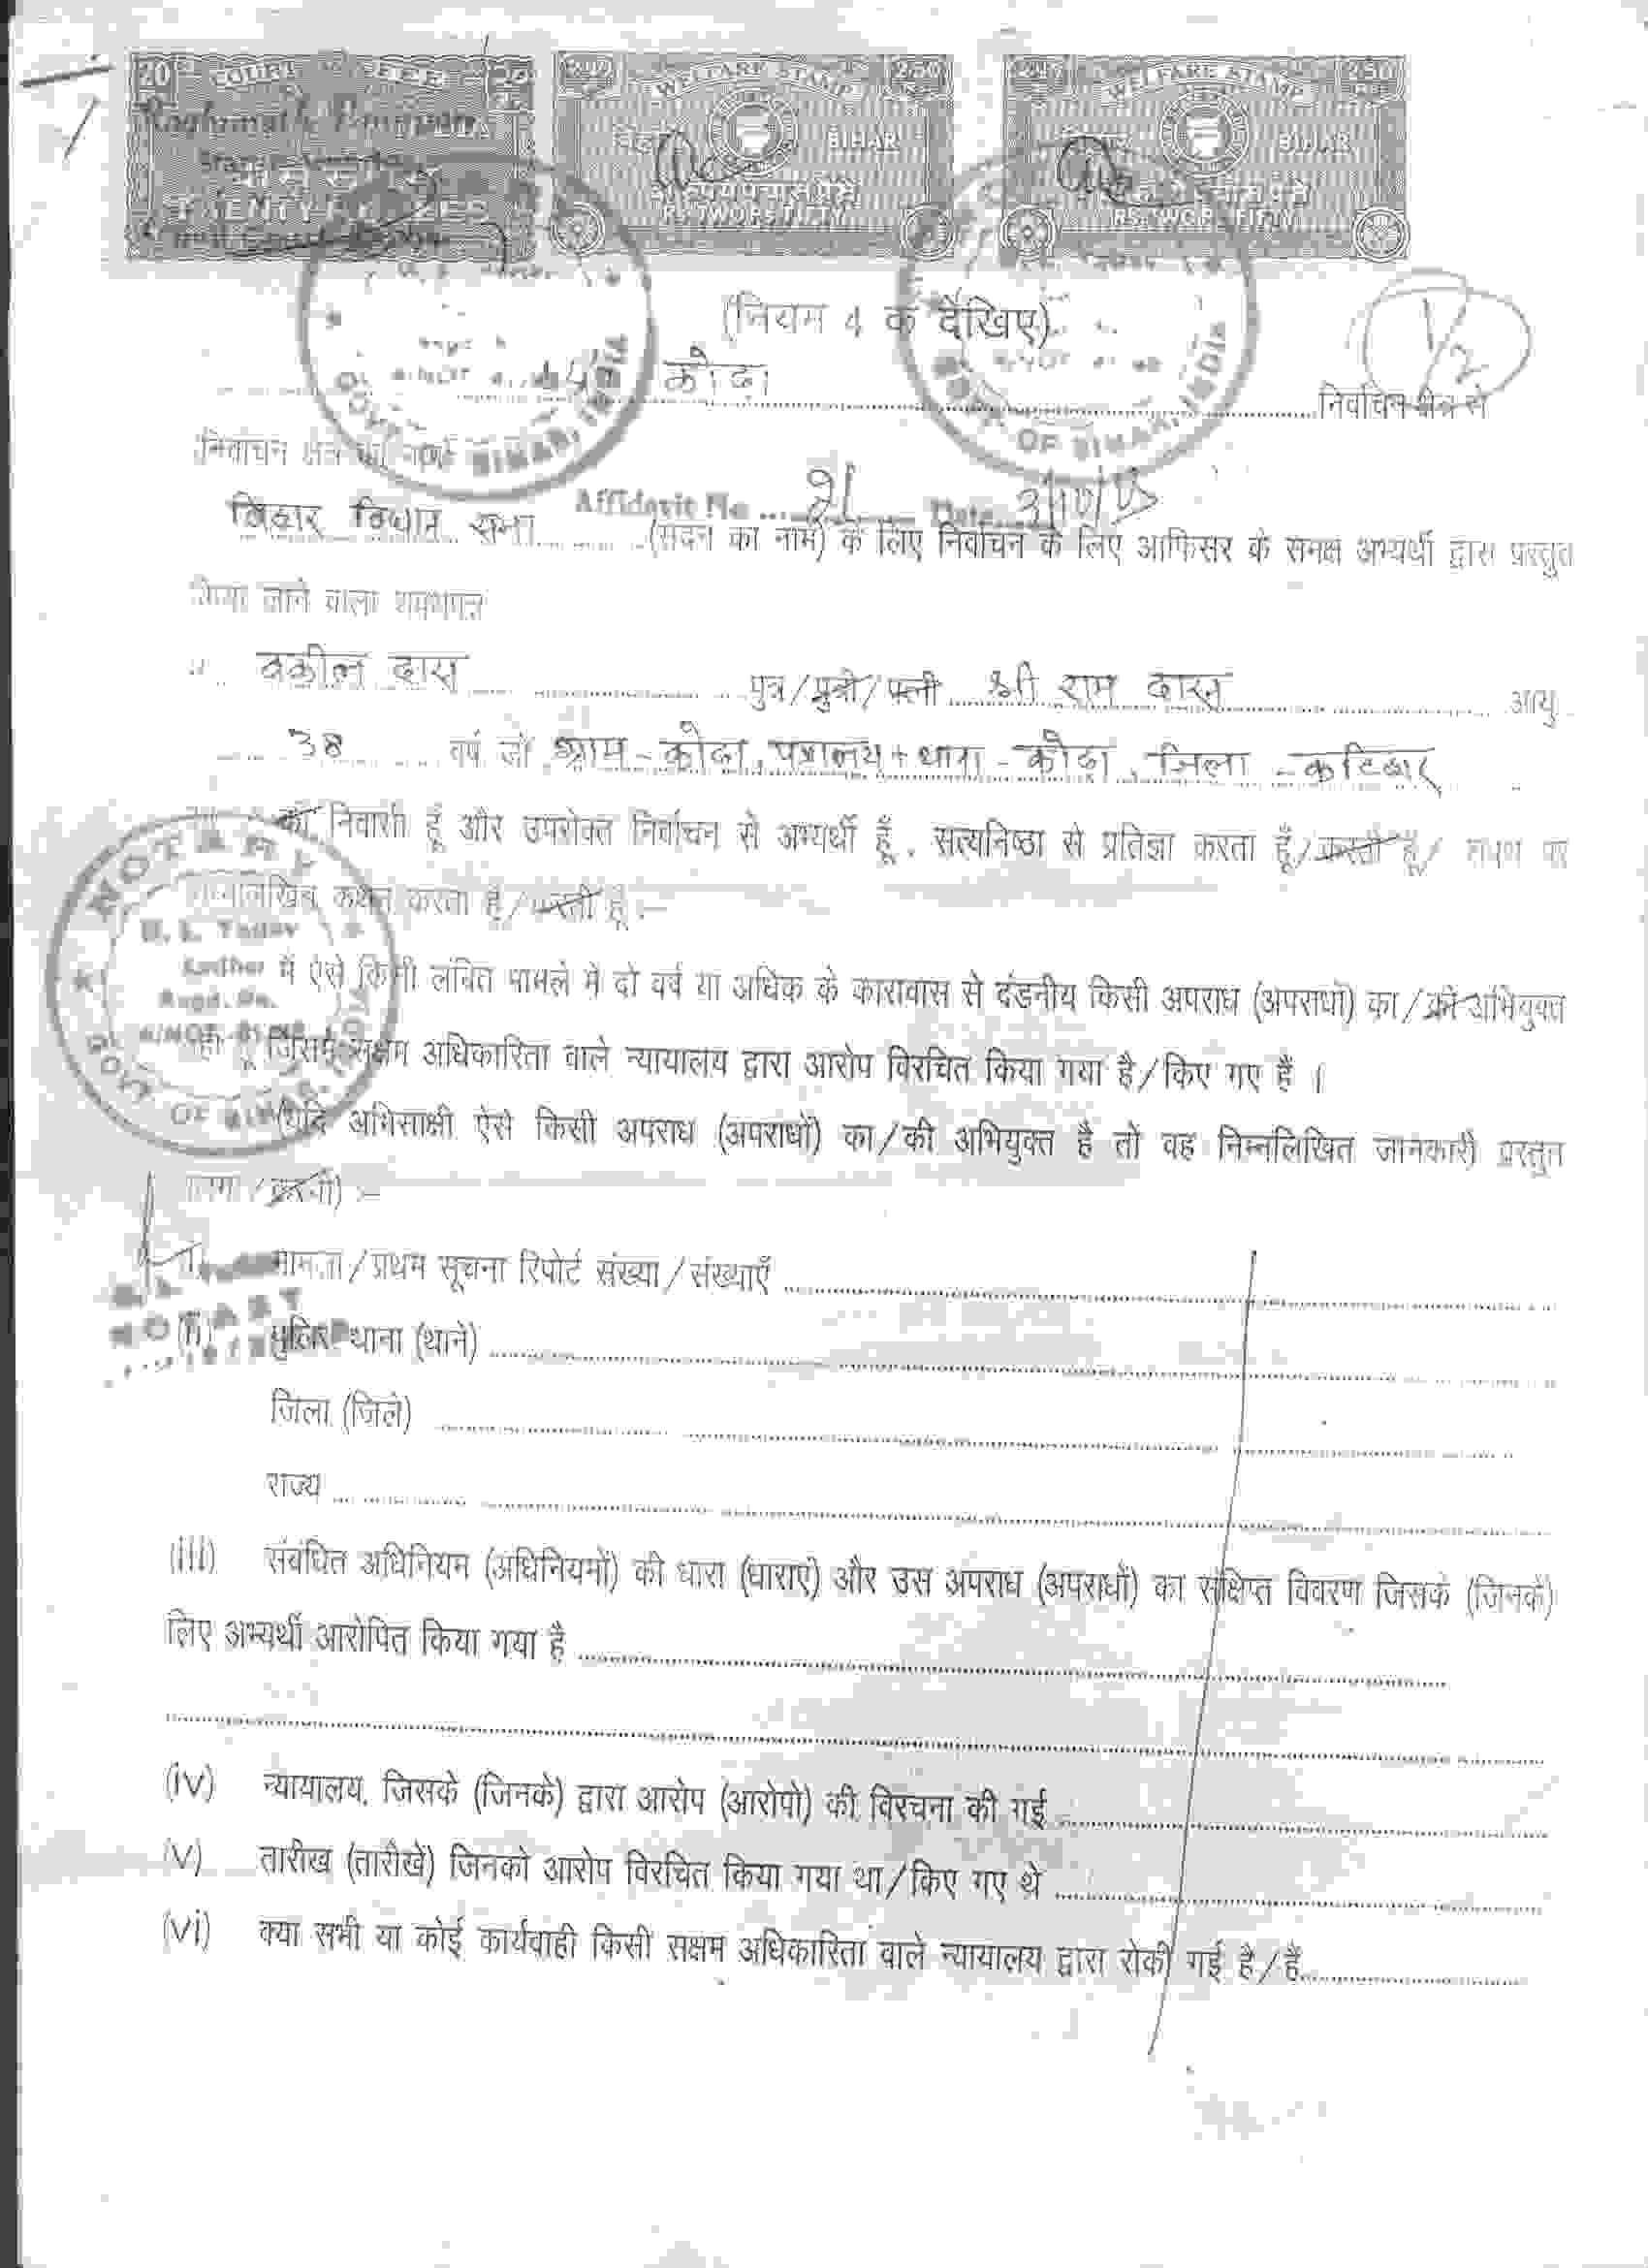 20 COURT FEE 20
WELFARE STAMP 2.50
WELFARE STAMP 2.50
BIHAR
BIHAR
RS. TWO P. FIFTY
RS. TWO P. FIFTY
(नियम 4 क देखिए)
कोढ़ा निर्वाचन क्षेत्र से
GOVT. OF BIHAR, INDIA
GOVT. OF BIHAR, INDIA
निर्वाचन क्षेत्र का नाम
Affidavit No. Date
बिहार विधान सभा (सदन का नाम) के लिए निर्वाचन के लिए आफिसर के समक्ष अभ्यर्थी द्वारा प्रस्तुत
किया जाने वाला शपथपत्र
वकील दास पुत्र/पुत्री/पत्नी श्री राम दास आयु
38 वर्ष जो ग्राम - कोढ़ा, पत्रालय + थाना - कोढ़ा, जिला - कटिहार
का निवासी हूँ और उपरोक्त निर्वाचन से अभ्यर्थी हूँ, सत्यनिष्ठा से प्रतिज्ञा करता हूँ/करती हूँ/ शपथ पर
निम्नलिखित कथन करता हूँ/करती हूँ :-
NOTARY
Regd. No.
GOVT. OF BIHAR, INDIA
मैं ऐसे किसी लंबित मामले में दो वर्ष या अधिक के कारावास से दंडनीय किसी अपराध (अपराधों) का/की अभियुक्त
जिसमें सक्षम अधिकारिता वाले न्यायालय द्वारा आरोप विरचित किया गया है/किए गए हैं ।
(यदि अभिसाक्षी ऐसे किसी अपराध (अपराधों) का/की अभियुक्त है तो वह निम्नलिखित जानकारी प्रस्तुत
करेगा/करेगी) :-
मामला/प्रथम सूचना रिपोर्ट संख्या/संख्याएँ
NOTARY
(ii) पुलिस थाना (थाने)
जिला (जिले)
राज्य
(iii) संबंधित अधिनियम (अधिनियमों) की धारा (धाराएं) और उस अपराध (अपराधों) का संक्षिप्त विवरण जिसके (जिनके)
लिए अभ्यर्थी आरोपित किया गया है
(iv) न्यायालय, जिसके (जिनके) द्वारा आरोप (आरोपो) की विरचना की गई
(v) तारीख (तारीखें) जिनको आरोप विरचित किया गया था/किए गए थे
(vi) क्या सभी या कोई कार्यवाही किसी सक्षम अधिकारिता वाले न्यायालय द्वारा रोकी गई है/हैं